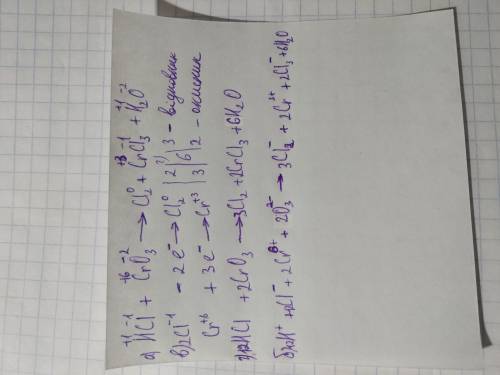 а) H⁺¹Cl⁻¹ + Cr⁺⁶O₃⁻² → Cl₂⁰ + Cr⁺³Cl₃⁻¹ + H₂⁺¹O⁻²
в) 2Cl⁻¹ - 2e⁻ → Cl₂⁰ | 2 | 6 | 3 - відновник
Cr⁺⁶ + 3e⁻ → Cr⁺³ | 3 | 2 - окисник
г) 12HCl + 2CrO₃ → 3Cl₂ + 2CrCl₃ + 6H₂O
б) 12H⁺ + 12Cl⁻ + 2Cr⁶⁺ + 2O₃²⁻ → 3Cl₂⁻ + 2Cr³⁺ + 2Cl₃⁻ + 6H₂O